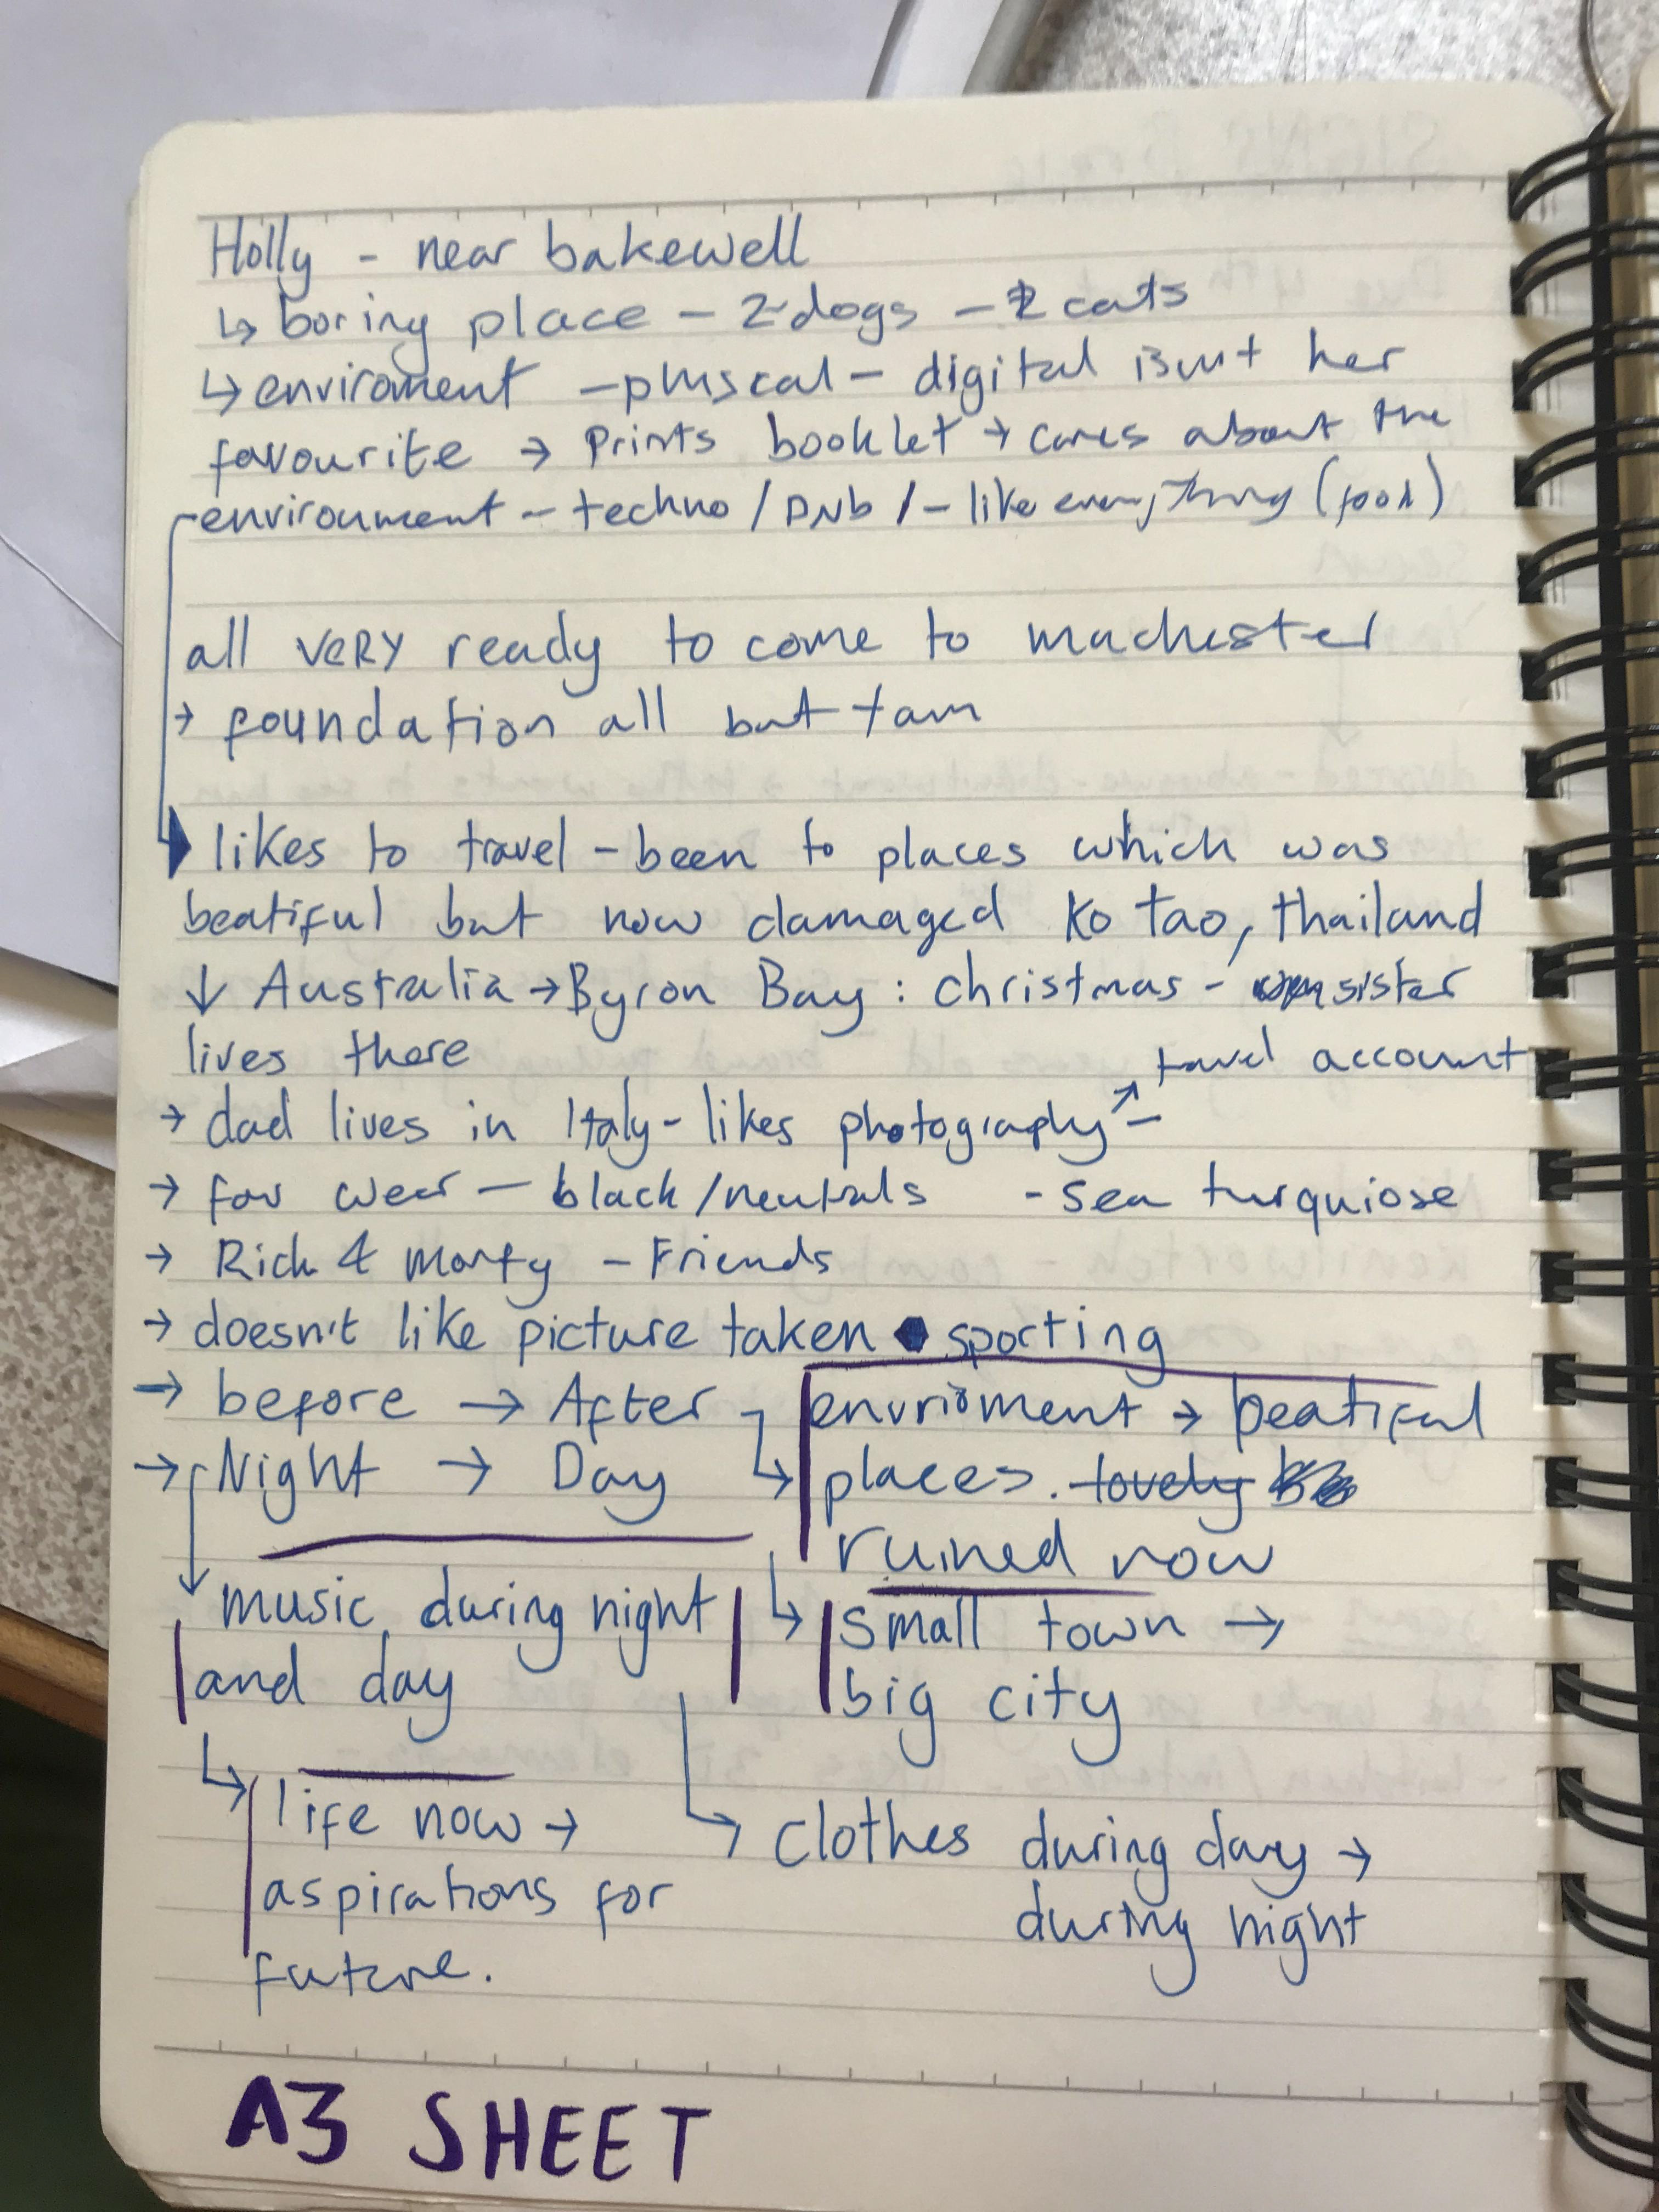 Holly - near bakewell
↳ boring place - 2 dogs - 2 cats
↳ enviroment - physcal - digital isn't her
favourite → prints booklet → cares about the
environment - techno / DNb / - like everything (food)
all VERY ready to come to machester
→ foundation all but tam
likes to travel - been to places which was
beatiful but now damaged Ko tao, thailand
↓ Australia → Byron Bay : christmas - sister
lives there
travel account
→ dad lives in Italy - likes photography ↗ -
→ fav wear - black/neutrals - sea turquiose
→ Rick & morty - Friends
→ doesn't like picture taken sporting
→ before → After
envrioment → beatiful
→ Night → Day
places. lovely
ruined now
music during night
and day
small town →
big city
life now →
aspirations for
future.
clothes during day →
during night
A3 SHEET